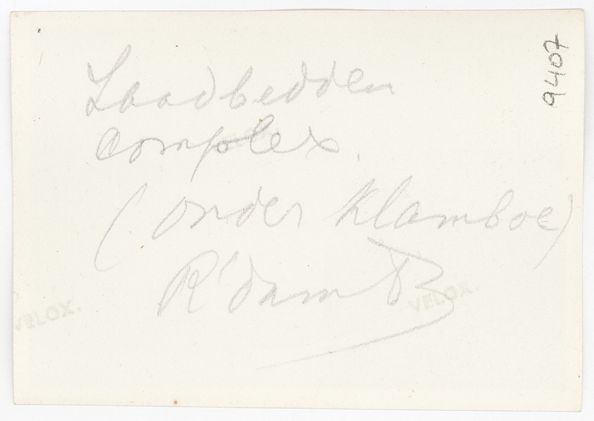 Zaadbedden
complex.
(onder klamboe)
R'dam B
9407
VELOX.
VELOX.